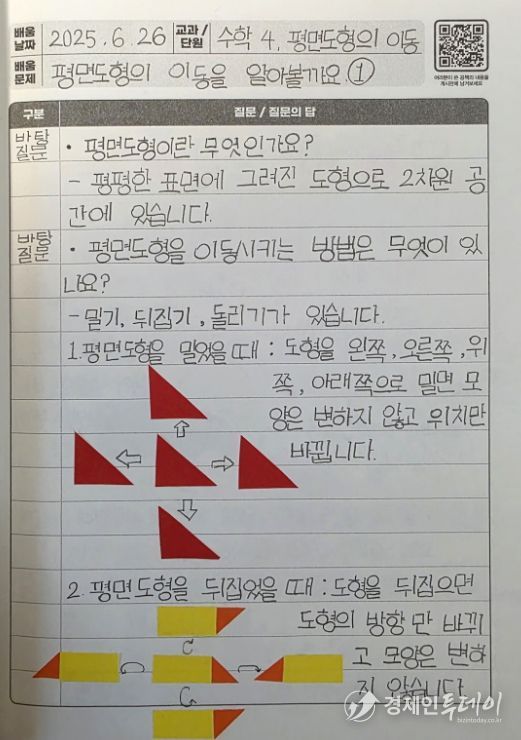 배움 날짜 2025. 6. 26 교과/단원 수학 4. 평면도형의 이동
배움 문제 평면도형의 이동을 알아볼까요 ①
구분 질문 / 질문의 답
바탕 질문 • 평면도형이란 무엇인가요?
- 평평한 표면에 그려진 도형으로 2차원 공
간에 있습니다.
바탕 질문 • 평면도형을 이동시키는 방법은 무엇이 있
나요?
- 밀기, 뒤집기, 돌리기가 있습니다.
1. 평면도형을 밀었을 때 : 도형을 왼쪽, 오른쪽, 위
쪽, 아래쪽으로 밀면 모
양은 변하지 않고 위치만
바뀝니다.
2. 평면도형을 뒤집었을 때 : 도형을 뒤집으면
도형의 방향만 바뀌
고 모양은 변하
지 않습니다
경제인투데이
bizintoday.co.kr